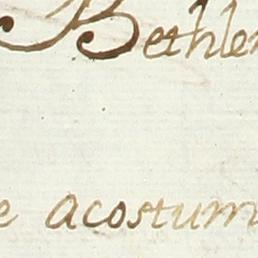 Bethle
e acostum